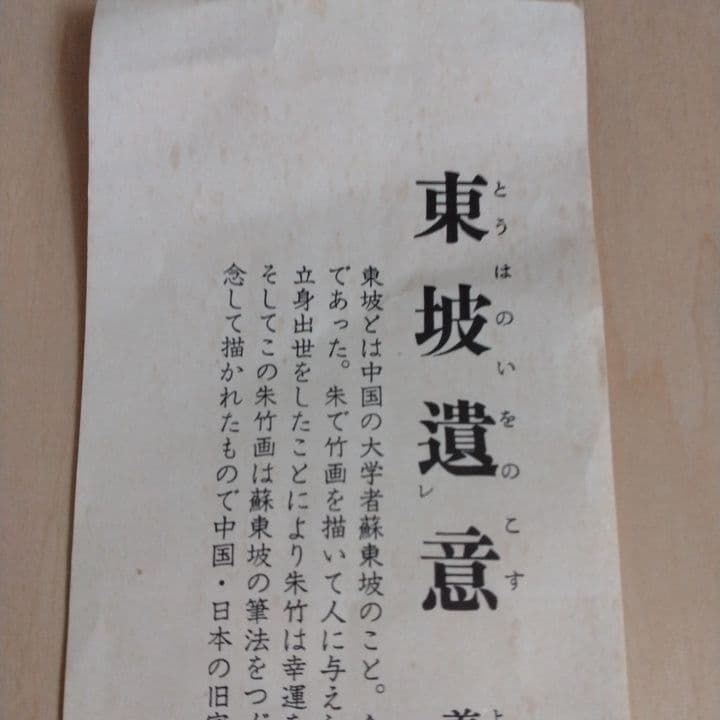 東坡遺レ意
とうはのいをのこす
東坡とは中国の大学者蘇東坡のこと。
であった。朱で竹画を描いて人に与え
立身出世をしたことにより朱竹は幸運を
そしてこの朱竹画は蘇東坡の筆法をつ
念して描かれたもので中国・日本の旧